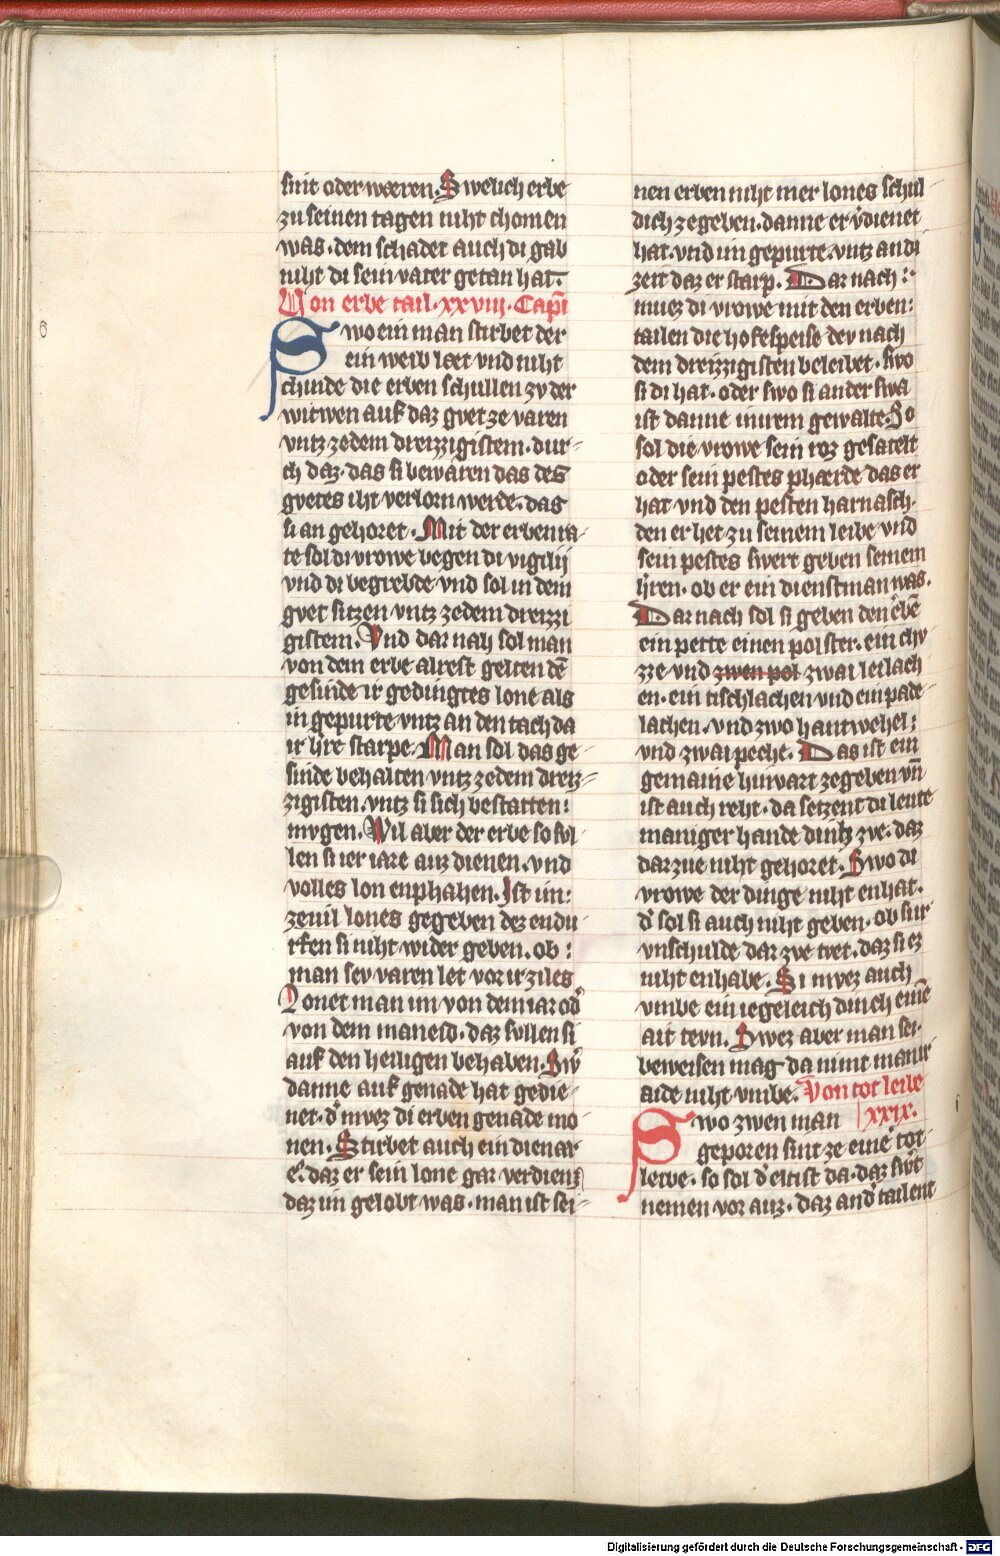 sint oder wæren. Swelich erbe
zu seinen tagen niht chomen
was. dem schadet auch di gab
niht di sein vater getan hat.
Von erbe tail. xxviii. Capĩ
Swo ein man stirbet der
ein weib læt vnd niht
chinde die erben schullen zv der
witwen auf daz gvet ze varen
vntz zedem dreizzigistem. dur-
ch daz. das si bewaren das des
gvetes iht verlorn werde. das
si an gehoret. Mit der erben ra-
te sol di vrowe begen di vigilij
vnd di begrebde vnd sol in dem
gvet sitzen vntz zedem dreizzi
gistem. Vnd dar nah sol man
von dem erbe alrest gelten dē
gesinde ir gedingtes lone als
in gepurte vntz an den tach da
ir h̾re starpe. Man sol das ge-
sinde behalten vntz zedem dreiz-
zigisten. vntz si sich bestatten:
mvgen. Wil aber der erbe so sol-
len si ier iare auz dienen. vnd
volles lon enphahen. Ist im:
zeuil lones gegeben dez endu-
rfen si niht wider geben. ob:
man sev varen let vor ir ziles
Lonet man im von dem iar od̾
von dem maneid. daz sullen si
auf den heiligen behaben. Sw̾
danne auf genade hat gedie-
net. d̾ mvez di erben genade mo
nen. Stirbet auch ein dienar
e. daz er sein lone gar verdienz
daz im gelobt was. man ist sei-
nen erben niht mer lones schul
dich zegeben. danne er v̾dienet
hat. vnd im gepurte. vntz an di
zeit daz er starp. Dar nach:
muez di vrowe mit den erben:
tailen die hofespeise dev nach
dem dreizzigisten beleibet. swo
si di hat. oder swo si ander swa
ist danne in irem gewalte. So
sol die vrowe sein roz gesatelt
oder sein pestes phærde das er
hat vnd den pesten harnasch.
den er het zu seinem leibe vnd
sein pestes swert geben seinem
h̾ren. ob er ein dienstman was.
Dar nach sol si geben den ebē
ein pette einen polster. ein chv
zze vnd zwen pol zwai leilach
en. ein tischlachen vnd ein pade
lachen. vnd zwo hantwehel:
vnd zwai peche. Das ist ein
gemaine hiwart zegeben vñ
ist auch reht. da setzent di leute
maniger hande dinch zve. daz
dar zue niht gehoret. Swo di
vrowe der dinge niht enhat.
d̾ sol si auch niht geben. ob si ir
vnschulde dar zve tvet. daz si ez
niht enhabe. Si mvez auch
vmbe ein iegeleich dinch einē
ait tevn. Swez aber man sei-
beweisen mag da nimt man ir
aide niht vmbe. Von tot leibe
Swo zwen man xxix.
geporen sint ze eine tot
leibe. so sol d̾ eltist da. daz sw̾t
nemen vor auz. daz and̾ tailent
Digitalisierung gefördert durch die Deutsche Forschungsgemeinschaft - DFG